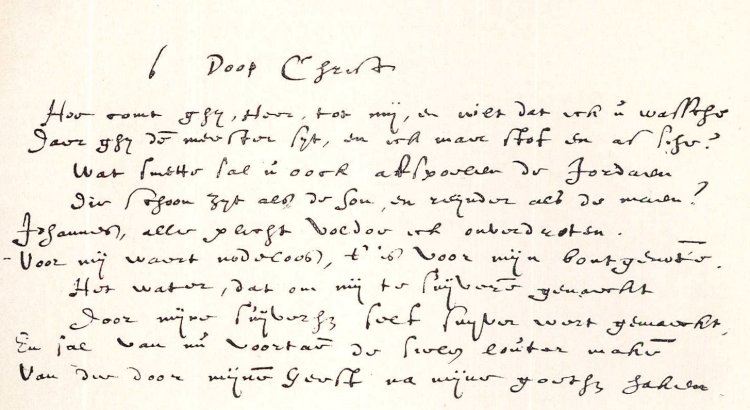 6 Doop Christi
Hoe comt ghy, Heer, tot mij, en wilt dat ick ú wassche
Daer ghy dē meester syt, en ick maer stof en assche?
Wat smette sal ú oock afspoelen de Jordaen
Die schoon zyt als de son, en reijnder als de maen?
Johannes, alle plicht voldoe ick onverdroten.
Voor mij waert nodeloos, t'is voor mijn bontgenotē.
Het water, dat om mij te suijverē genaeckt
Door mijne suijverh3 self suijver wert gemaeckt,
En sal van nú voortaē de sielen loúter makē
Van die door mijnē Geest na mijne haken